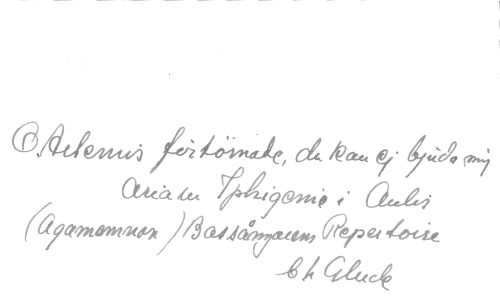 O, Artemis förtörnade, du kan ej bjuda mig
Aria ur Iphigenie i Aulis
(Agamemnon) Bassångarens Repertoire
Ch Gluck